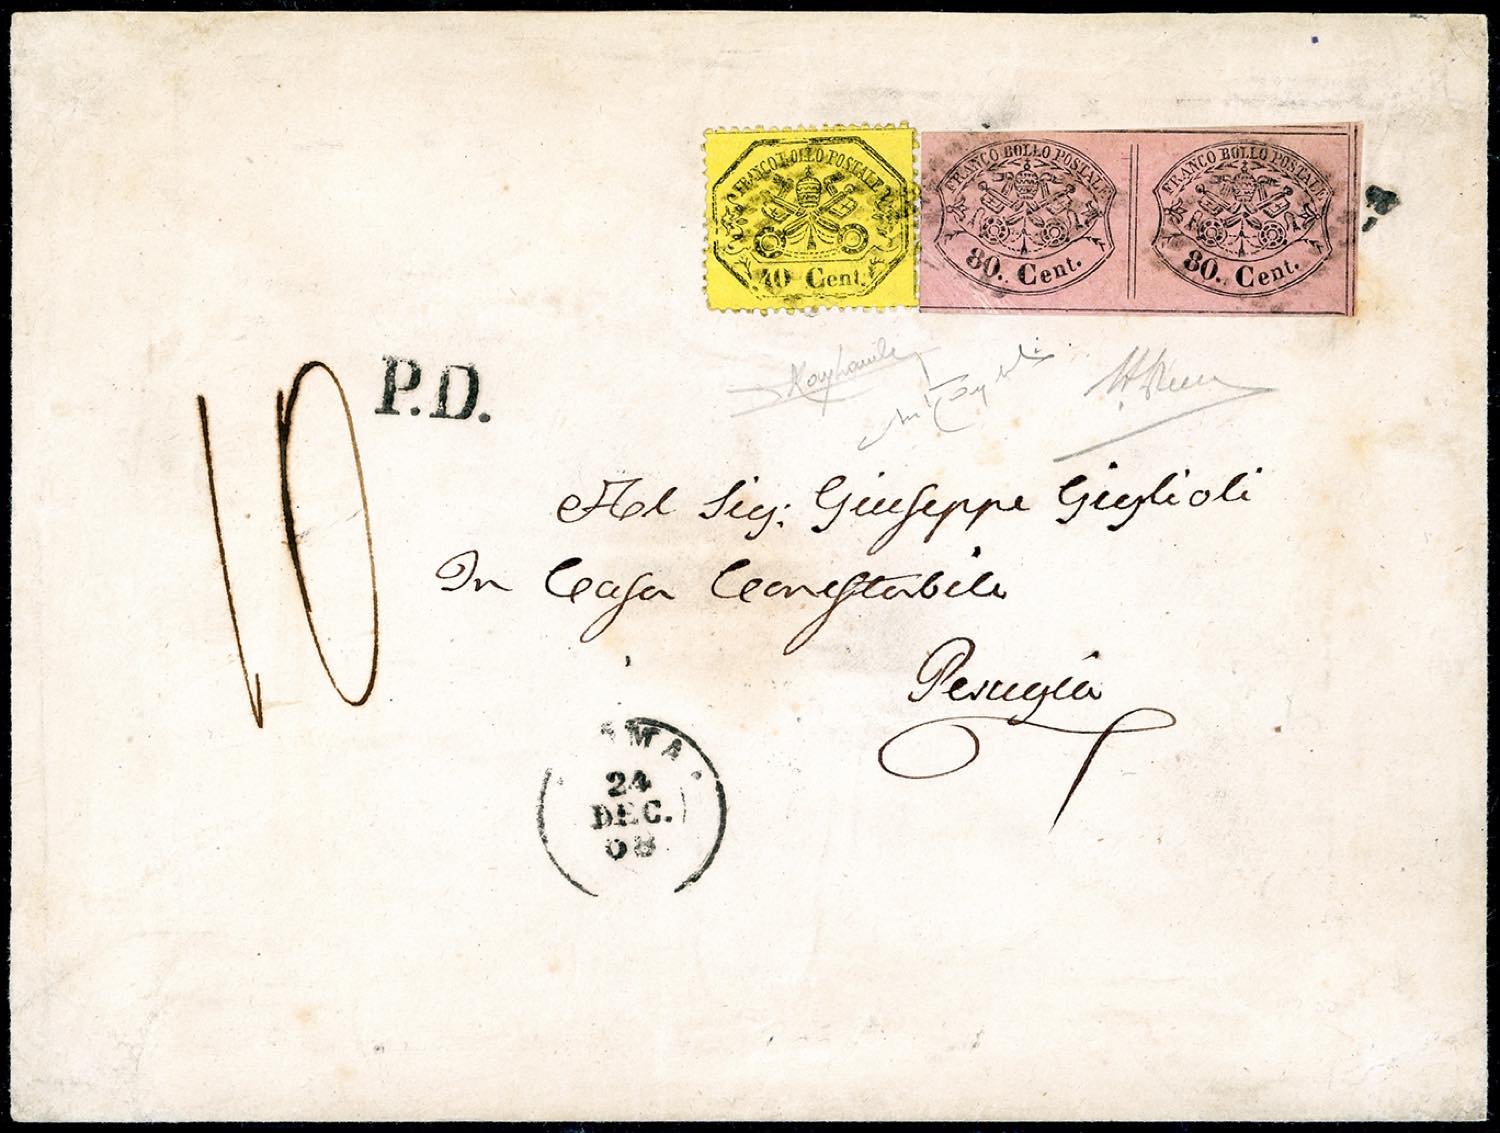 FRANCO BOLLO POSTALE
40 Cent.
FRANCO BOLLO POSTALE
80. Cent.
FRANCO BOLLO POSTALE
80. Cent.
P.D.
10
Al Sig: Giuseppe Giglioli
In Casa Conestabile
Perugia
24
DEC.
68